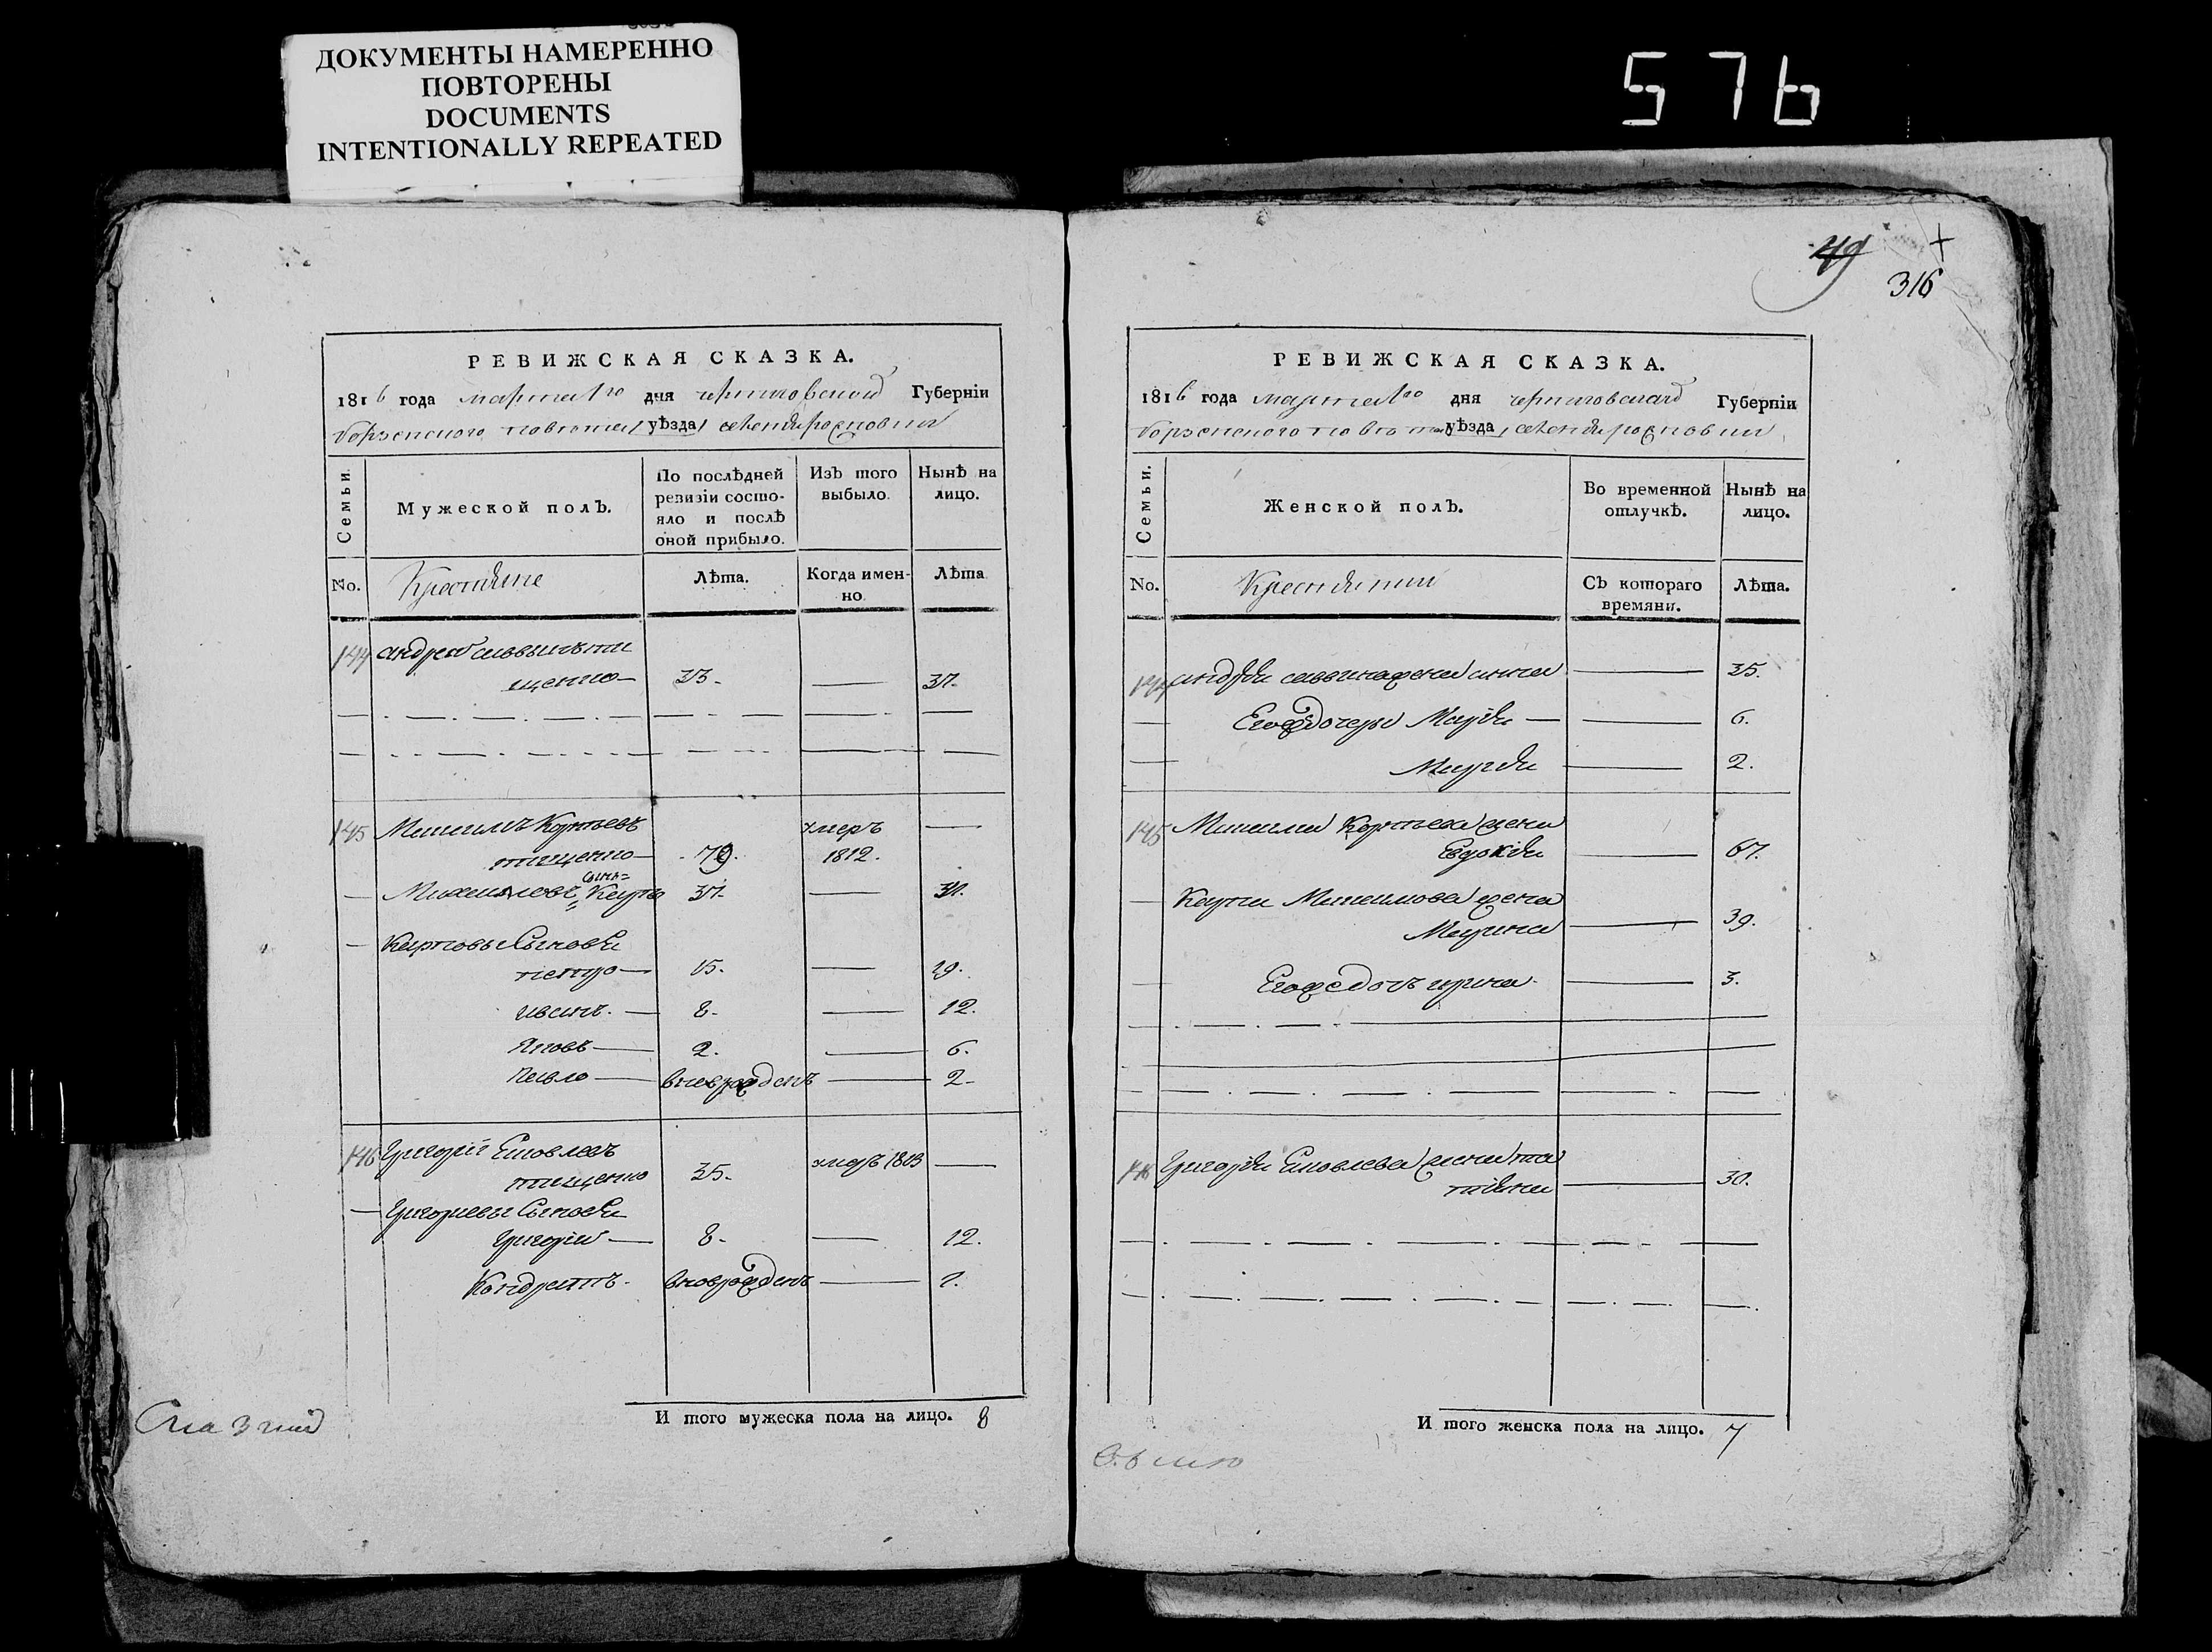 ДОКУМЕНТЫ НАМЕРЕННО
ПОВТОРЕНЫ
DOCUMENTS
INTENTIONALLY REPEATED
576
РЕВИЖСКАЯ СКАЗКА.
1816 года марта 1го дня черниговской Губерніи
борзенского повета уѣзда
Семьи.
Мужеской полъ.
По послѣдней ревизіи состо-
яло и послѣ
оной прибыло.
Изъ того
выбыло.
Нынѣ на
лицо.
No.
Крестяне
Лѣта.
Когда имен-
но.
Лѣта
144 андрей саввинъ ти
щенко — 33. — 37.
145 Михаилъ Карпьевъ умеръ —
тищенко — 79. 1812.
— Михаиловъ сынъ Карпъ 37. — 31.
— Карповы Сыновья
петро — 15. — 19.
иванъ. — 8. — 12.
Яковъ — 2. — 6.
Павло — вновърожденъ — 2.
146 Григорій Яковлевъ
тищенко 35. умеръ 1813 —
— Григориевы Сыновья
Григорий — 8. — 12.
Кондратъ. вноврожденъ — 1.
И того мужеска пола на лицо. 8
49
316
РЕВИЖСКАЯ СКАЗКА.
1816 года марта 1го дня черниговской Губерніи
борзенского повета уѣзда
Семьи.
Женской полъ.
Во временной
отлучкѣ.
Нынѣ на
лицо.
No.
Крестянки
Съ котораго
времяни.
Лѣта.
144 андрея саввина жена анна — 35.
— Егождочеры Марья — 6.
— Марья — 2.
145 Михаила Карпьева жена
Евдокия — 67.
— Карпа Михаилова жена
Марина — 39.
— Егоже дочь ирина — 3.
146 Григорья Яковлева жена та
тияна — 30.
И того женска пола на лицо. 7